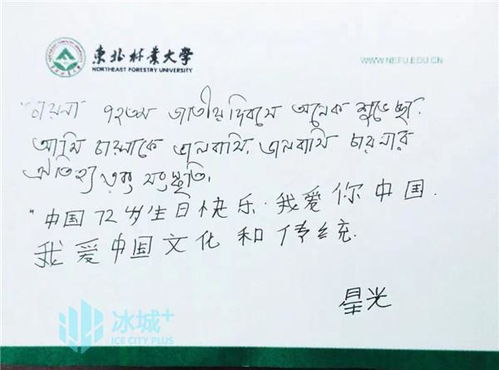 東北林業大學
NORTHEAST FORESTRY UNIVERSITY
WWW.NEFU.EDU.CN
"চায়না ৭২তম জাতীয় দিবসে অনেক শুভেচ্ছা.
আমি চায়নাকে ভালবাসি, ভালবাসি চায়নার
ঐতিহ্য এবং সংস্কৃতি.
"中国72岁生日快乐.我爱你中国.
我爱中国文化和传统.
星光
冰城+
ICE CITY PLUS